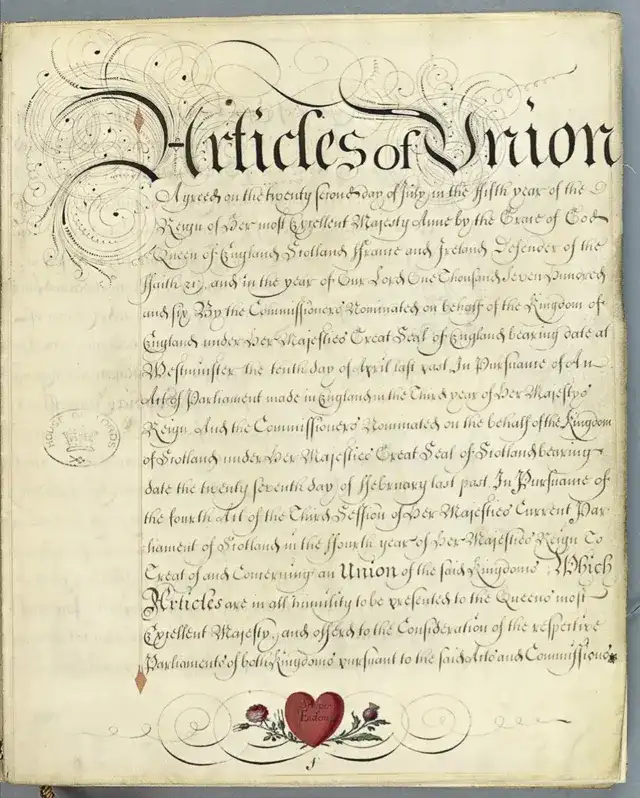 Articles of Union
Agreed on the twenty second day of July, in the ffifth year of the
Reign of Her most Excellent Majesty Anne by the Grace of God
Queen of England Scotland ffrance and Ireland Defender of the
ffaith &c, and in the year of Our Lord One Thousand Seven Hundred
and six By the Commissioners Nominated on behalf of the Kingdom of
England under Her Majesties Great Seal of England bearing date at
Westminster the tenth day of April last past In Pursuance of An
Act of Parliament made in England in the Third year of Her Majestys
Reign And the Commissioners Nominated on the behalf of the Kingdom
of Scotland under Her Majesties Great Seal of Scotland bearing
date the twenty seventh day of ffebruary last past In Pursuance of
the fourth Act of the Third Session of Her Majesties Current Par
liament of Scotland in the ffourth year of Her Majesties Reign To
Treat of and Concerning an Union of the said Kingdoms Which
Articles are in all humility to be presented to the Queens most
Excellent Majesty, and offered to the Consideration of the respective
Parliaments of both Kingdoms pursuant to the said Acts and Commissions
HOUSE OF LORDS